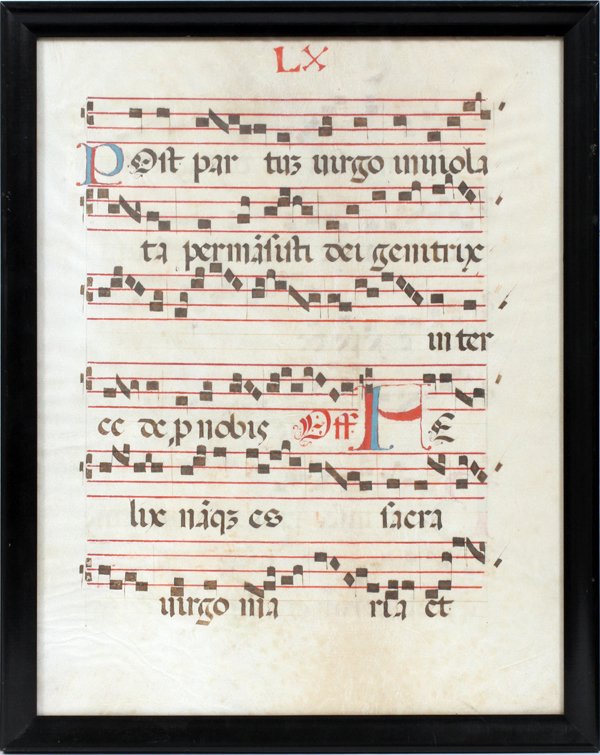 LX
Post par tuȝ virgo inviola
ta permãsisti dei genitrix
inter
ce de p nobis Off FE
lix nãqȝ es sacra
virgo ma ria et